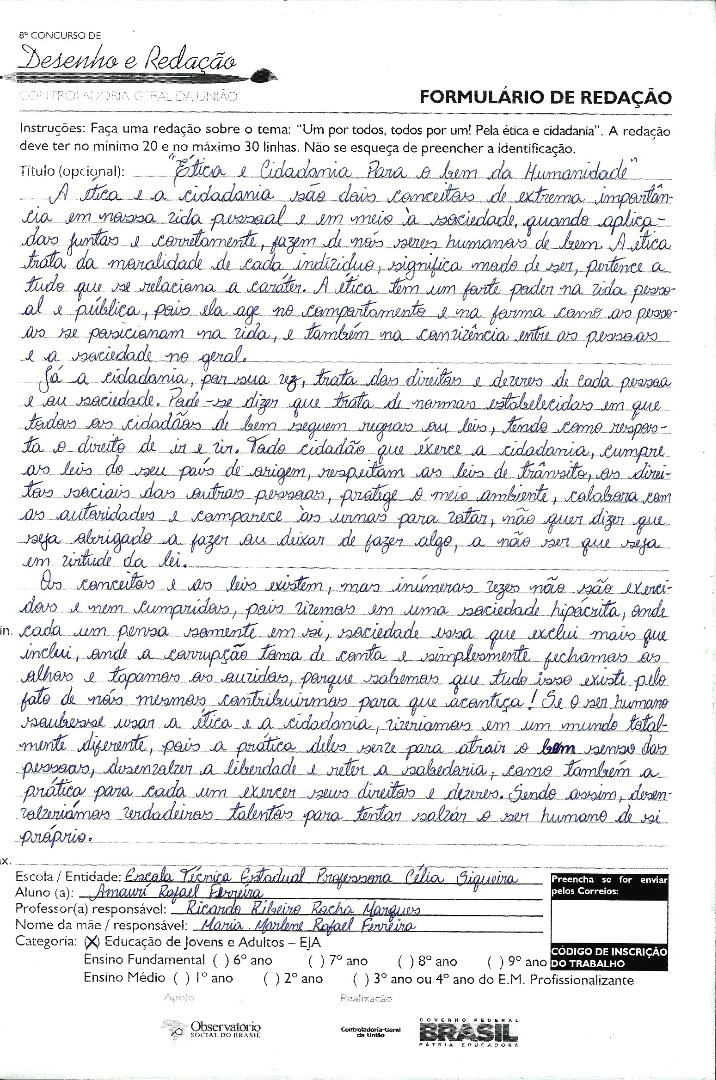 8º CONCURSO DE
Desenho e Redação
CONTROLADORIA-GERAL DA UNIÃO
FORMULÁRIO DE REDAÇÃO
Instruções: Faça uma redação sobre o tema: "Um por todos, todos por um! Pela ética e cidadania". A redação
deve ter no mínimo 20 e no máximo 30 linhas. Não se esqueça de preencher a identificação.
Título (opcional): "Ética e Cidadania Para o bem da Humanidade"
A ética e a cidadania são dois conceitos de extrema importân-
cia em nossa vida pessoal e em meio à sociedade, quando aplica-
das juntas e corretamente, fazem de nós seres humanos de bem. A ética
trata da moralidade de cada indivíduo, significa modo de ser, pertence a
tudo que se relaciona a caráter. A ética tem um forte poder na vida pesso-
al e pública, pois ela age no comportamento e na forma como as pesso-
as se posicionam na vida, e também na convivência entre as pessoas
e a sociedade no geral.
Já a cidadania, por sua vez, trata dos direitos e deveres de cada pessoa
e ou sociedade. Pode-se dizer que trata de normas estabelecidas em que
todos os cidadãos de bem seguem regras ou leis, tendo como respos-
ta o direito de ir e vir. Todo cidadão que éxerce a cidadania, cumpre
as leis do seu país de origem, respeitam as leis de trânsito, os direi-
tos sociais das outras pessoas, protege o meio ambiente, colabora com
as autoridades e comparece às urnas para votar, não quer dizer que
seja obrigado a fazer ou deixar de fazer algo, a não ser que seja
em virtude da lei.
Os conceitos e as leis existem, mas inúmeras vezes não são exerci-
dos e nem cumpridos, pois vivemos em uma sociedade hipócrita, onde
in. cada um pensa somente em si, sociedade essa que exclui mais que
inclui, onde a corrupção toma de conta e simplesmente fechamos os
olhos e tapamos os ouvidos, porque sabemos que tudo isso existe pelo
fato de nós mesmos contribuirmos para que aconteça! Se o ser humano
soubesse usar a ética e a cidadania, viveriamos em um mundo total-
mente diferente, pois a prática deles serve para atrair o bom senso das
pessoas, desenvolver a liberdade e reter a sabedoria, como também a
prática para cada um exercer seus direitos e deveres. Sendo assim, desen-
volveriámos verdadeiros talentos para tentar salvar o ser humano de si
próprio.
x.
Escola / Entidade: Escola Técnica Estadual Professora Célia Siqueira
Aluno (a): Amauri Rafael Ferreira
Professor(a) responsável: Ricardo Ribeiro Rocha Marques
Nome da mãe / responsável: Maria Marlene Rafael Ferreira
Categoria: (X) Educação de Jovens e Adultos – EJA
Ensino Fundamental ( ) 6º ano ( ) 7º ano ( ) 8º ano ( ) 9º ano
Ensino Médio ( ) 1º ano ( ) 2º ano ( ) 3º ano ou 4º ano do E.M. Profissionalizante
Preencha se for enviar
pelos Correios:
CÓDIGO DE INSCRIÇÃO
DO TRABALHO
Apoio
Realização
Observatório
SOCIAL DO BRASIL
Controladoria-Geral
da União
GOVERNO FEDERAL
BRASIL
PÁTRIA EDUCADORA